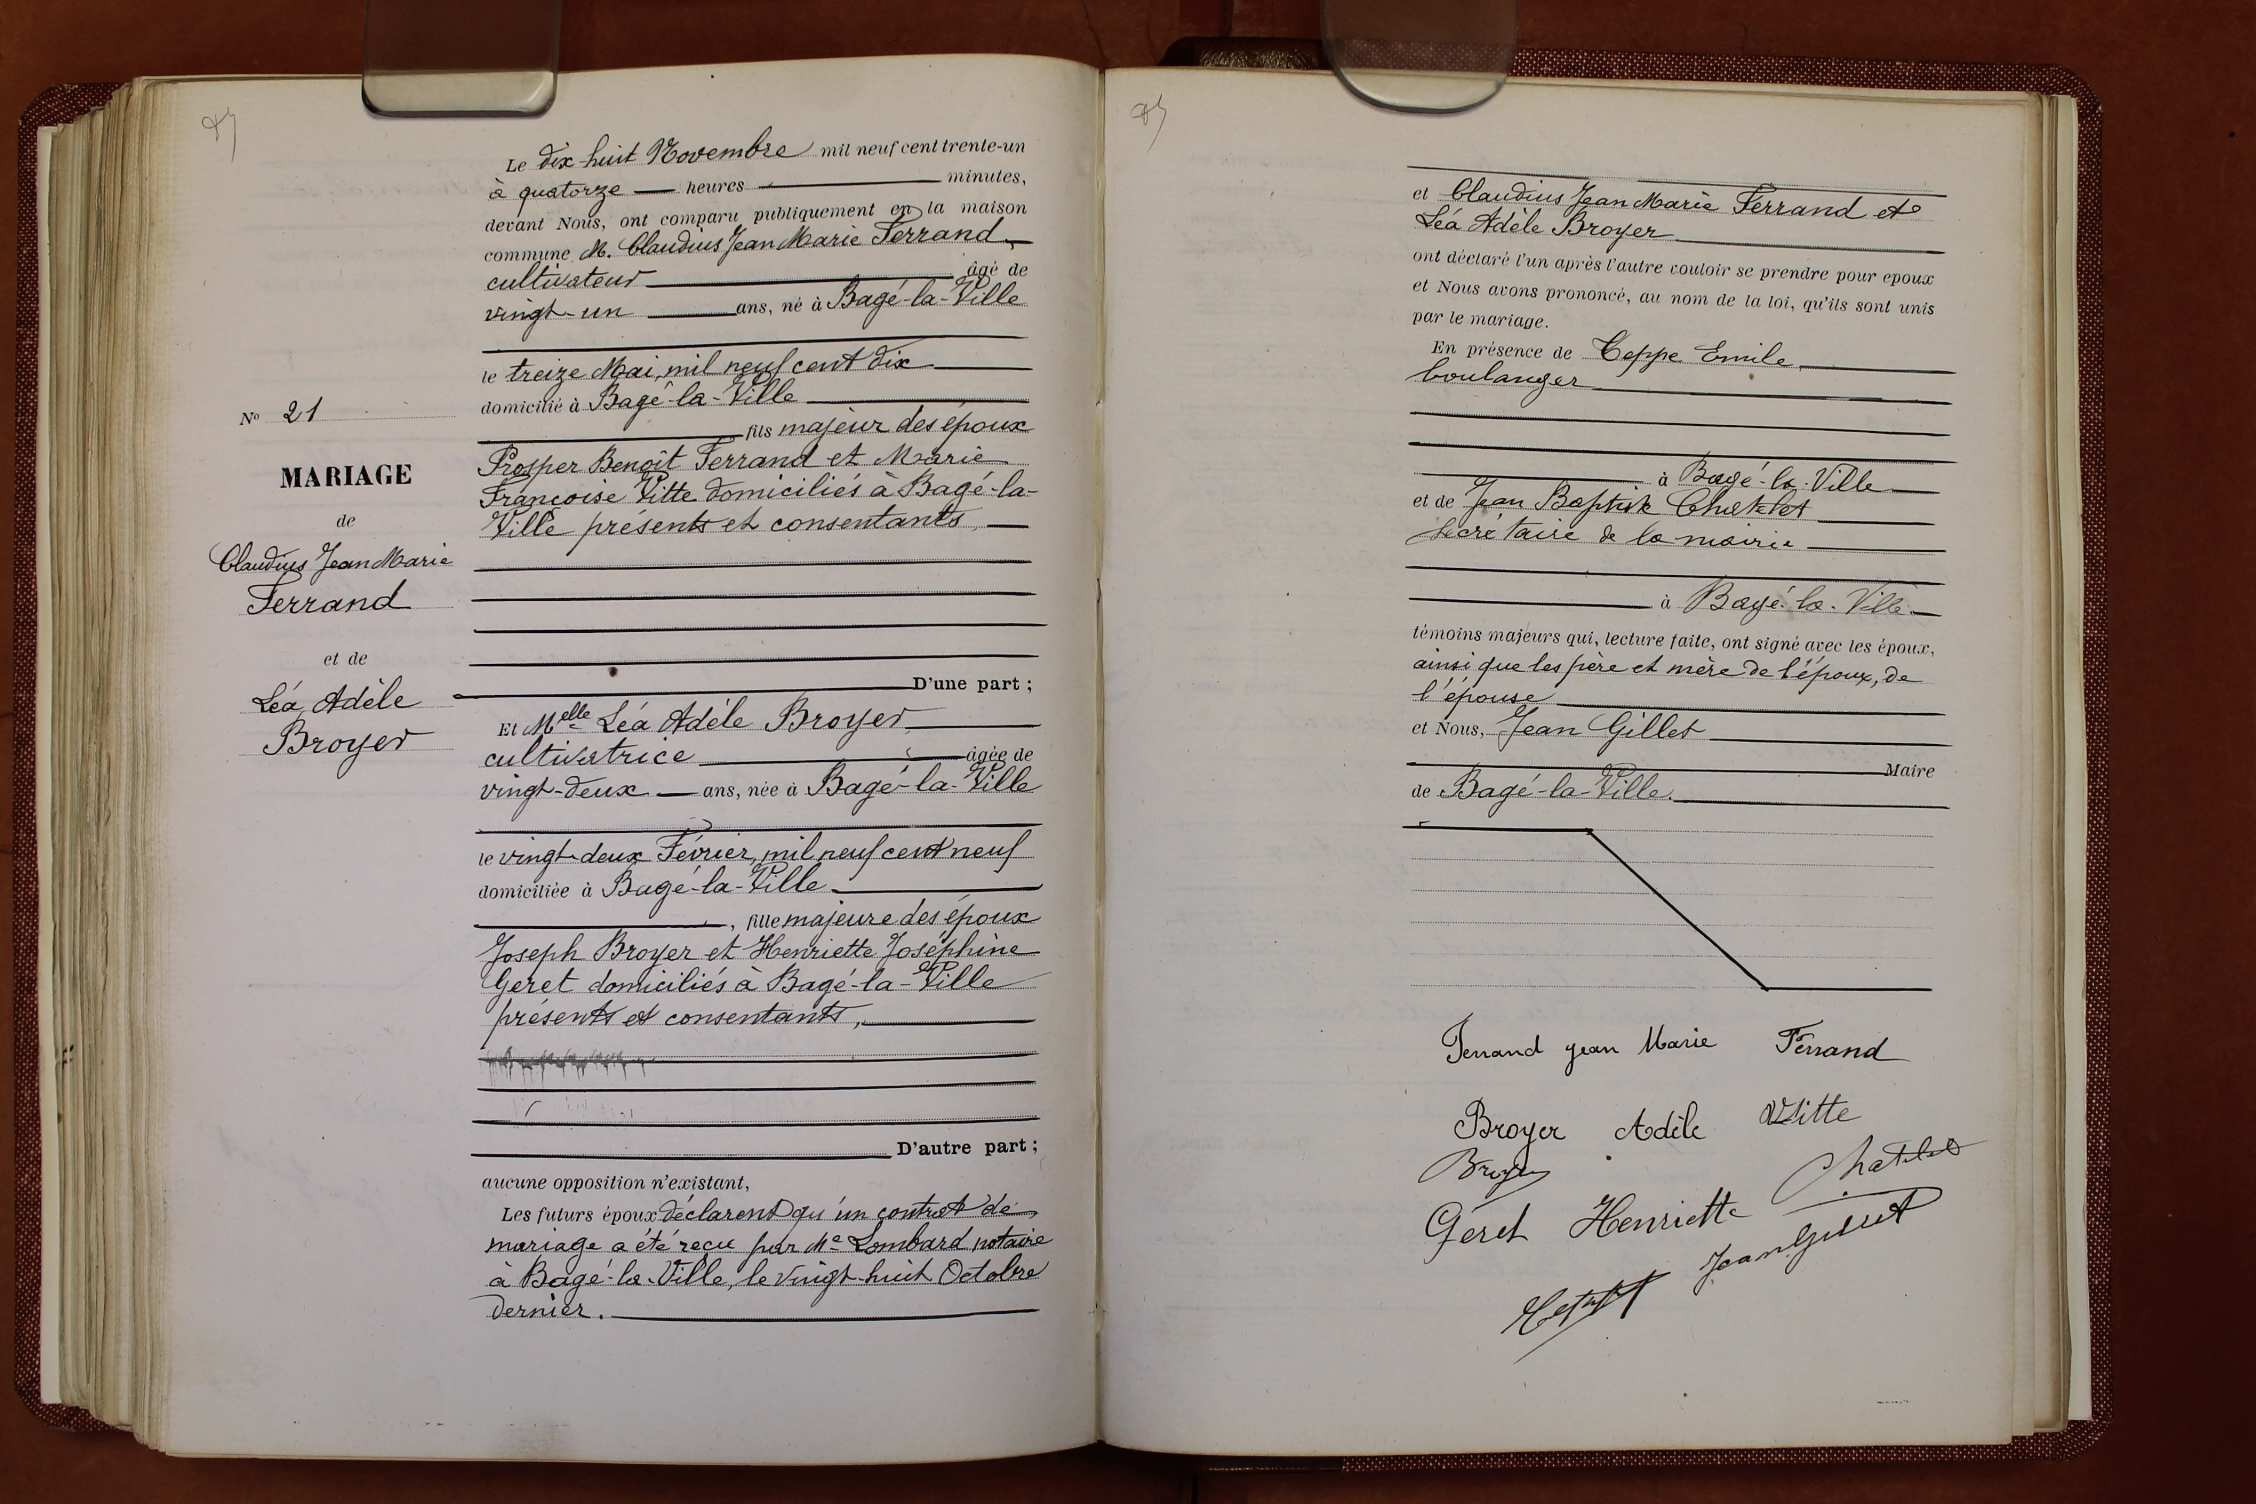 Le dix huit Novembre mil neuf cent trente-un
à quatorze heures minutes,
devant Nous, ont comparu publiquement en la maison
commune M. Claudius Jean Marie Ferrand
cultivateur âgé de
vingt-un ans, né à Bagé-la-Ville
le treize Mai, mil neuf cent dix
domicilié à Bagé-la-Ville
fils majeur des époux
Prosper Benoît Ferrand et Marie
Françoise Vitte domiciliés à Bagé-la-
Ville présents et consentants,
D'une part ;
Et Melle Léa Adèle Broyer
cultivatrice âgée de
vingt-deux ans, née à Bagé-la-Ville
le vingt-deux Février, mil neuf cent neuf
domiciliée à Bagé-la-Ville
, fille majeure des époux
Joseph Broyer et Henriette Joséphine
Geret domiciliés à Bagé-la-Ville
présents et consentants,
D'autre part ;
aucune opposition n'existant,
Les futurs époux déclarent qu'un contrat de
mariage a été recu par Me Lombard notaire
à Bagé-la-Ville, le vingt-huit Octobre
dernier.
No 21
MARIAGE
de
Claudius Jean Marie
Ferrand
et de
Léa Adèle
Broyer
et Claudius Jean Marie Ferrand et
Léa Adèle Broyer
ont déclaré l'un après l'autre vouloir se prendre pour epoux
et Nous avons prononcé, au nom de la loi, qu'ils sont unis
par le mariage.
En présence de Ceppe Emile
boulanger
à Bagé-la-Ville
et de Jean Baptiste Chatelet
secrétaire de la mairie
à Bagé-la-Ville
témoins majeurs qui, lecture faite, ont signé avec les époux,
ainsi que les père et mère de l'époux, de
l'épouse
et Nous, Jean Gillet
Maire
de Bagé-la-Ville.
Ferrand jean Marie Ferrand
Broyer Adèle Vitte
Broyer Chatelet
Géret Henriette
Jean Gillet